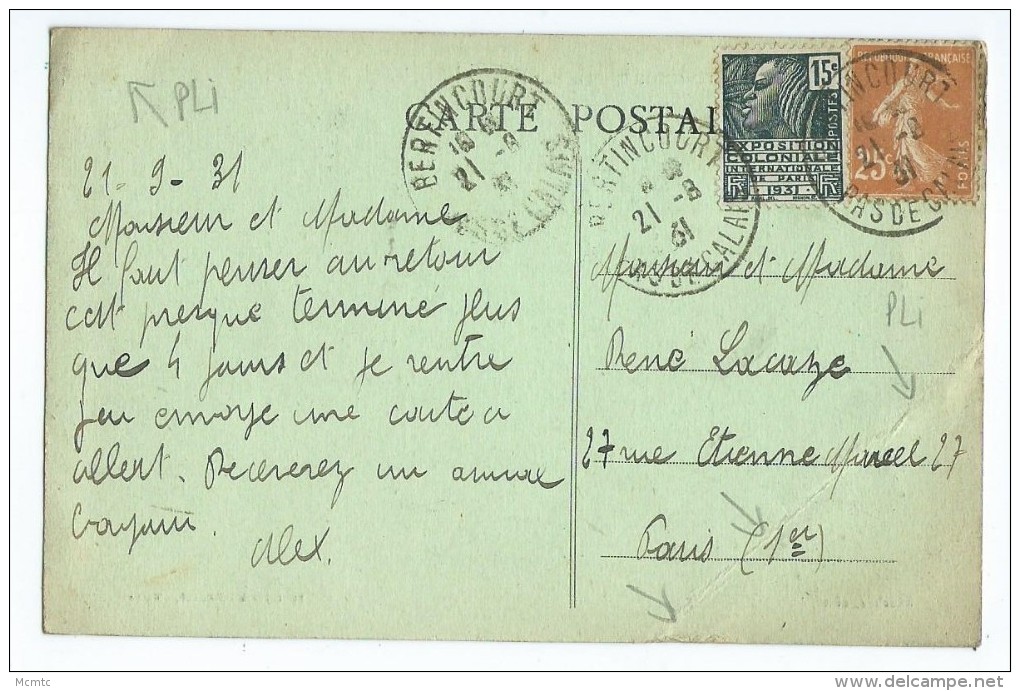 CARTE POSTALE
PLi
BERTINCOURT
18
21 -9
31
PAS DE CALAIS
BERTINCOURT
21 -9
31
PAS DE CALAIS
15c
POSTES
EXPOSITION
COLONIALE
INTERNATIONALE
DE PARIS
1931
REPUBLIQUE FRANÇAISE
25c
POSTES
BERTINCOURT
21 -9
31
PAS DE CALAIS
21-9-31
Monsieur et Madame
Il faut penser au retour
cest presque terminé plus
que 4 jours et je rentre
jeu envoye une carte a
albert. Receverez un amical
bonjour
Alex.
Monsieur et Madame
PLi
René Lacaze
27 rue Etienne Marcel 27
Paris (1er)
Mcmtc
www.delcampe.net